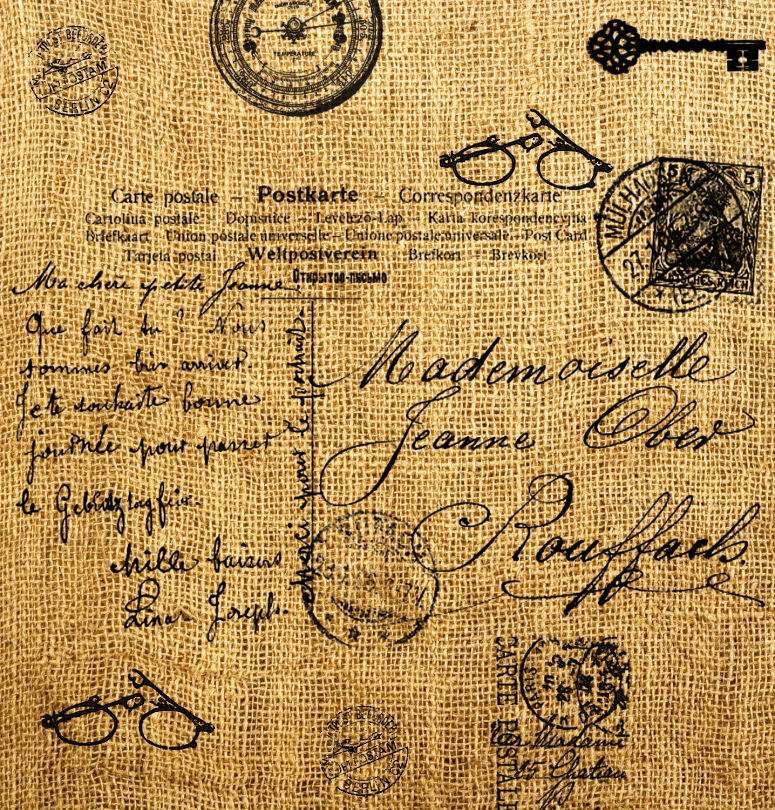 TEMPERATURE
BERLIN C2
Carte postale — Postkarte — Correspondenzkarte
Cartolina postale — Dopisnice — Levelező-Lap — Karta korespondencyjna
Briefkaart — Union postale universelle — Unione postale universale — Post Card
Tarjeta postal Weltpostverein Brefkort — Brevkort
Открытое письмо
MÜLHAUSEN
5 5
REICH
Ma chère petite Jeanne!
Que fait tu? Nous
sommes bien arrivés.
Je te souhaite bonne
journée pour passer
le Gebürtztagfeir.
Mille baisers
Lina Joseph.
Merci pour le portrait.
Mademoiselle
Jeanne Ober
Rouffach.
CARTE POSTALE
Madame
15 Chateau
BERLIN C2